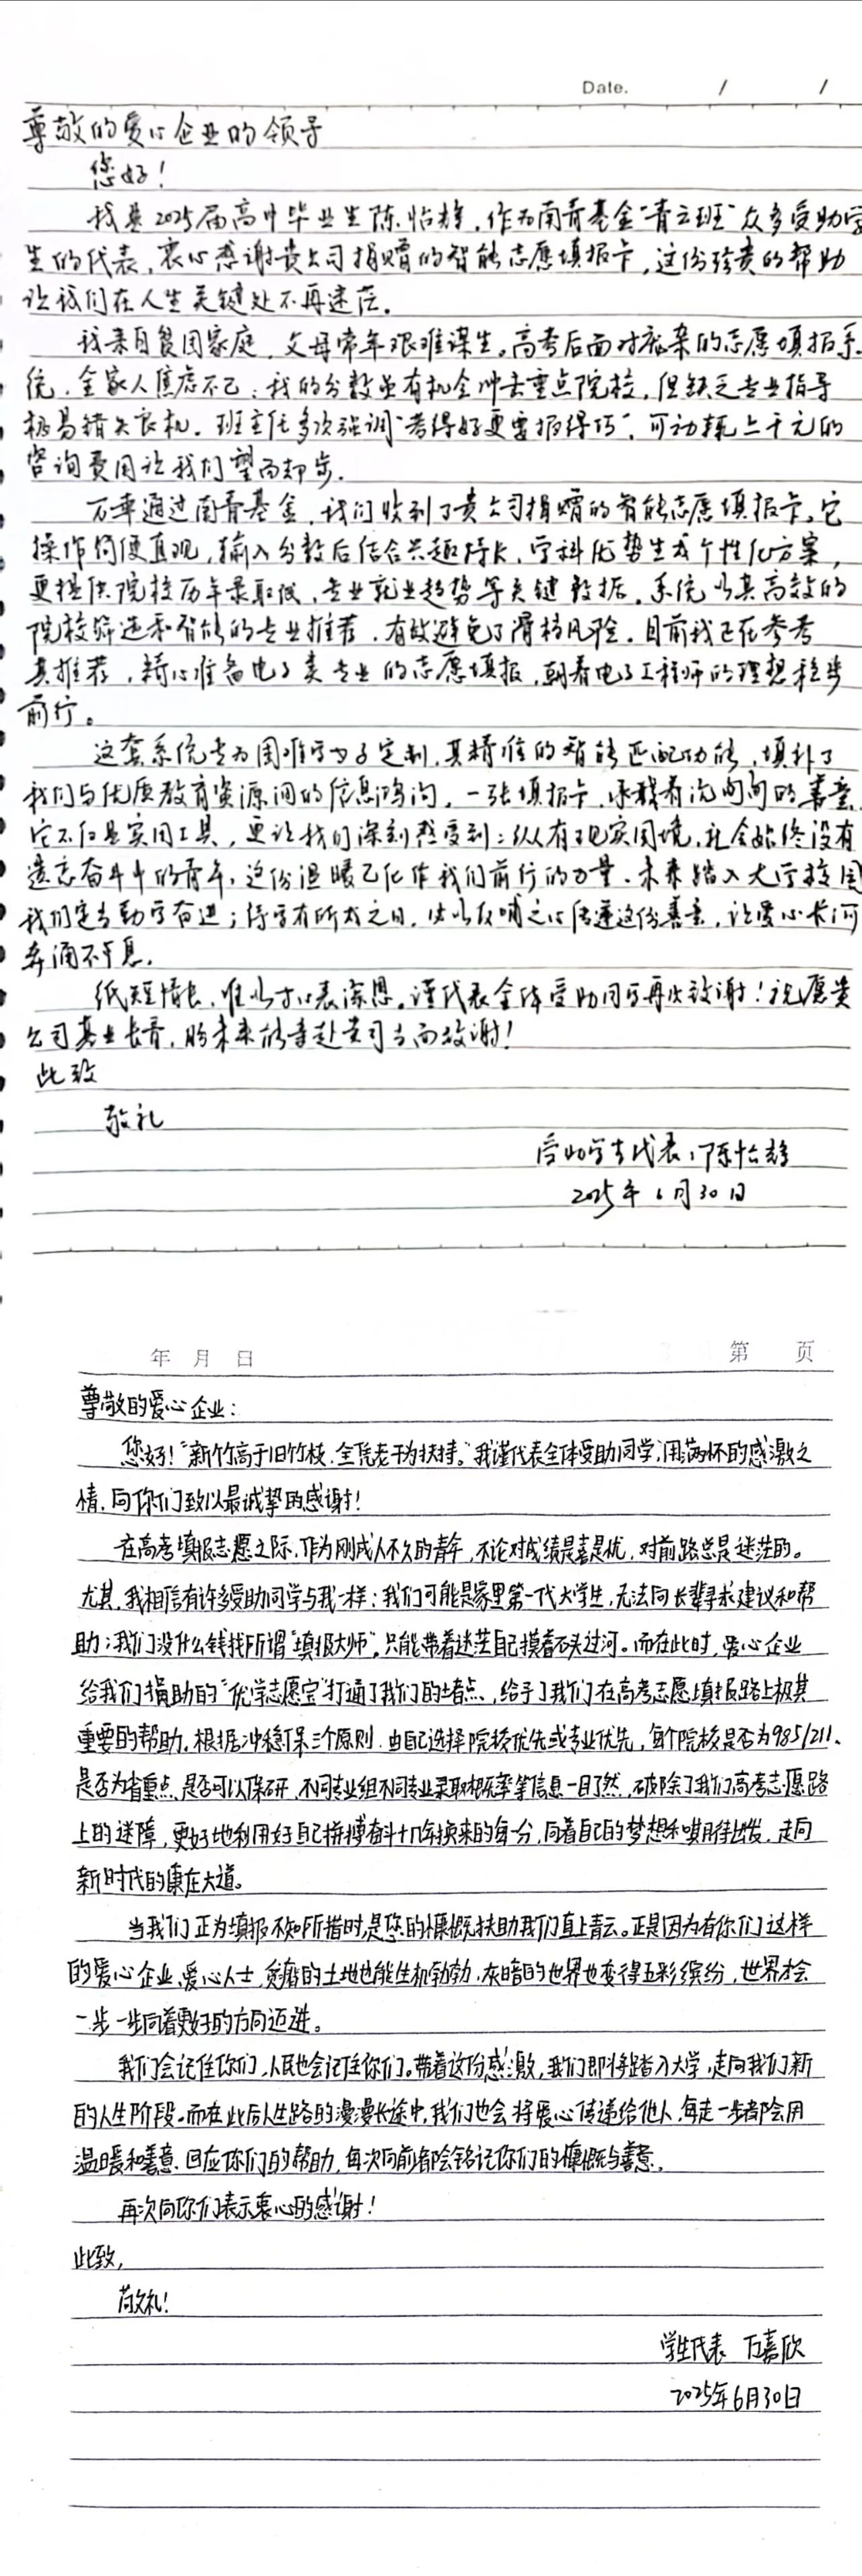 Date. / /
尊敬的爱心企业的领导
您好!
我是2025届高中毕业生陈怡,作为南青基金"青云班"众多受助学
生的代表,衷心感谢贵公司捐赠的智能志愿填报卡,这份珍贵的帮助
让我们在人生关键处不再迷茫。
我来自贫困家庭,父母常年艰难谋生。高考后面对繁杂的志愿填报系
统,全家人焦虑不已:我的分数虽有机会冲击重点院校,但缺乏专业指导
极易错失良机。班主任多次强调"考得好更要报得巧",可动辄上千元的
咨询费用让我们望而却步。
万幸通过南青基金,我们收到了贵公司捐赠的智能志愿填报卡。它
操作简便直观,输入分数后结合兴趣特长、学科优势生成个性化方案,
更提供院校历年录取线、专业就业趋势等关键数据。系统以其高效的
院校筛选和智能的专业推荐,有效避免了滑档风险。目前我正在参考
其推荐,精心准备电子类专业的志愿填报,朝着电子工程师的理想稳步
前行。
这套系统专为困难学子定制,其精准的智能匹配功能,填补了
我们与优质教育资源间的信息鸿沟。一张填报卡,承载着沉甸甸的善意。
它不仅是实用工具,更让我们深刻感受到:纵有现实困境,社会始终没有
遗忘奋斗中的青年,这份温暖已化作我们前行的力量。未来踏入大学校园
我们定当勤学奋进;待学有所成之日,必以反哺之心传递这份善意,让爱心长河
奔涌不息。
纸短情长,唯以寸心表深恩。谨代表全体受助同学再次致谢!祝愿贵
公司基业长青,盼未来能亲赴贵司当面致谢!
此致
敬礼
受助学生代表:陈怡
2025年6月30日
年 月 日 第 页
尊敬的爱心企业:
您好!"新竹高于旧竹枝,全凭老干为扶持。"我谨代表全体受助同学,用满怀的感激之
情,向你们致以最诚挚的感谢!
在高考填报志愿之际,作为刚成人不久的青年,不论对成绩是喜是忧,对前路总是迷茫的。
尤其,我相信有许多受助同学与我一样:我们可能是家里第一代大学生,无法向长辈寻求建议和帮
助;我们没什么钱找所谓"填报大师",只能带着迷茫自己摸着石头过河。而在此时,爱心企业
给我们捐助的"优学志愿宝"打通了我们的堵点,给予了我们在高考志愿填报路上极其
重要的帮助。根据冲稳保三个原则,由自己选择院校优先或专业优先,每个院校是否为985/211、
是否为省重点、是否可以保研,不同专业组不同专业录取概率等信息一目了然,破除了我们高考志愿路
上的迷障,更好地利用好自己拼搏奋斗十几年换来的每一分,向着自己的梦想和期待出发,走向
新时代的康庄大道。
当我们正为填报不知所措时,是您的慷慨扶助我们直上青云。正是因为有你们这样
的爱心企业、爱心人士,贫瘠的土地也能生机勃勃,灰暗的世界也变得五彩缤纷,世界才会
一步一步向着更好的方向迈进。
我们会记住你们,人民也会记住你们。带着这份感激,我们即将踏入大学,走向我们新
的人生阶段。而在此后人生路的漫漫长途中,我们也会将爱心传递给他人,每走一步都会用
温暖和善意,回应你们的帮助,每次向前都会铭记你们的慷慨与善意。
再次向你们表示衷心的感谢!
此致,
敬礼!
学生代表 万嘉欣
2025年6月30日